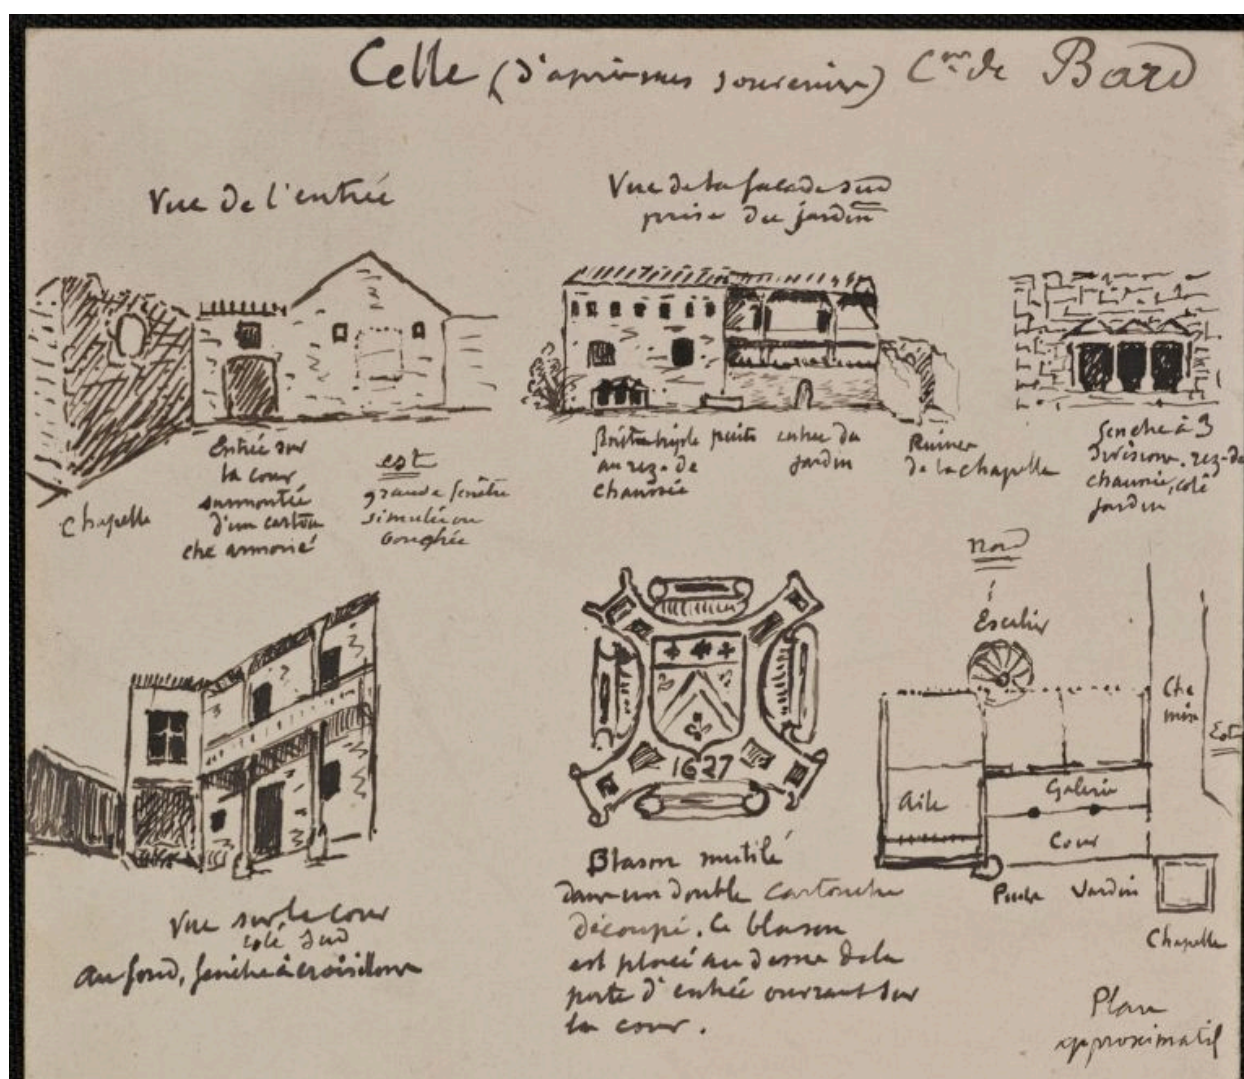 Celle (d'après mes souvenirs) Cne de Bard
Vue de l'entrée
Vue de la façade sud
prise du jardin
Chapelle
Entrée sur
la cour
surmontée
d'un cartou
che armorié
est
grande fenêtre
simulée ou
bouchée
triple
au rez-de
chaussée
puits
entrée du
jardin
Ruines
de la chapelle
fenêtre à 3
divisions, rez-de
chaussée, côté
jardin
Vue sur la cour
côté sud
au fond, fenêtre à croisillons
1627
Blason mutilé
dans un double cartouche
découpé. Ce blason
est placé au dessus de la
porte d'entrée ouvrant sur
la cour.
Nord
Escalier
Che
min
Est
Aile
Galerie
Cour
Jardin
Chapelle
Plan
approximatif